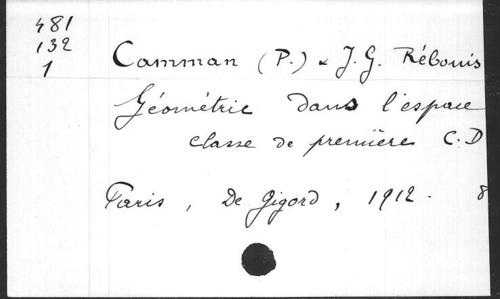 481
132
1
Camman (P.) & J. G. Rébouis
Géométrie dans l'espace
classe de première C.D
Paris, De Gigord, 1912. 8